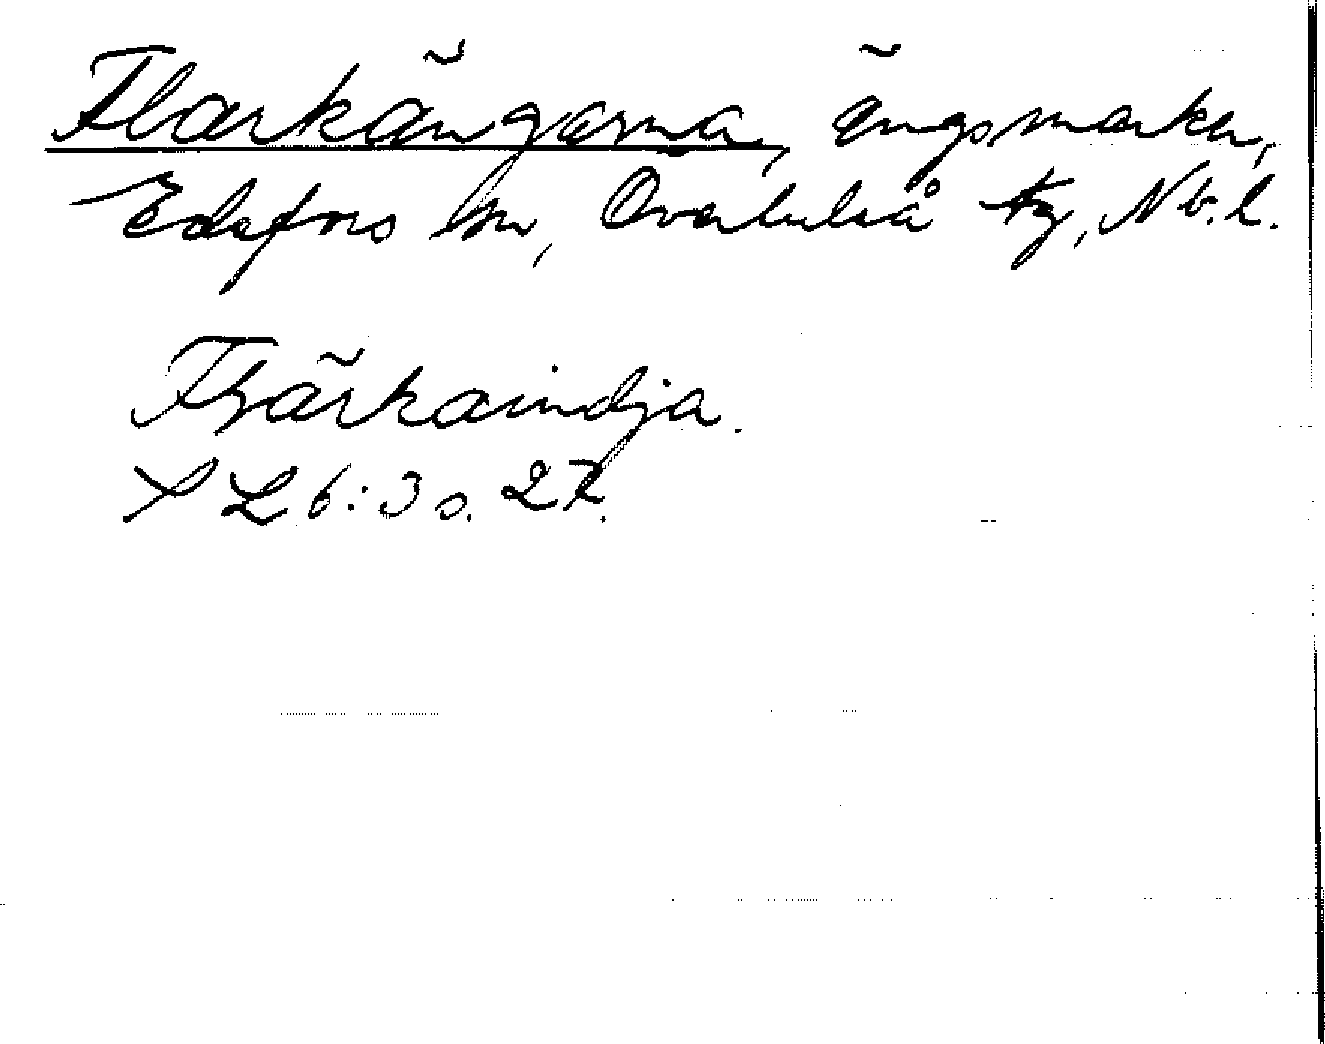 Flarkängarna, ängsmarker,
Edefors by, Överluleå tg, Nb.l.
Flårkaindja.
SL 6:3 s. 27.